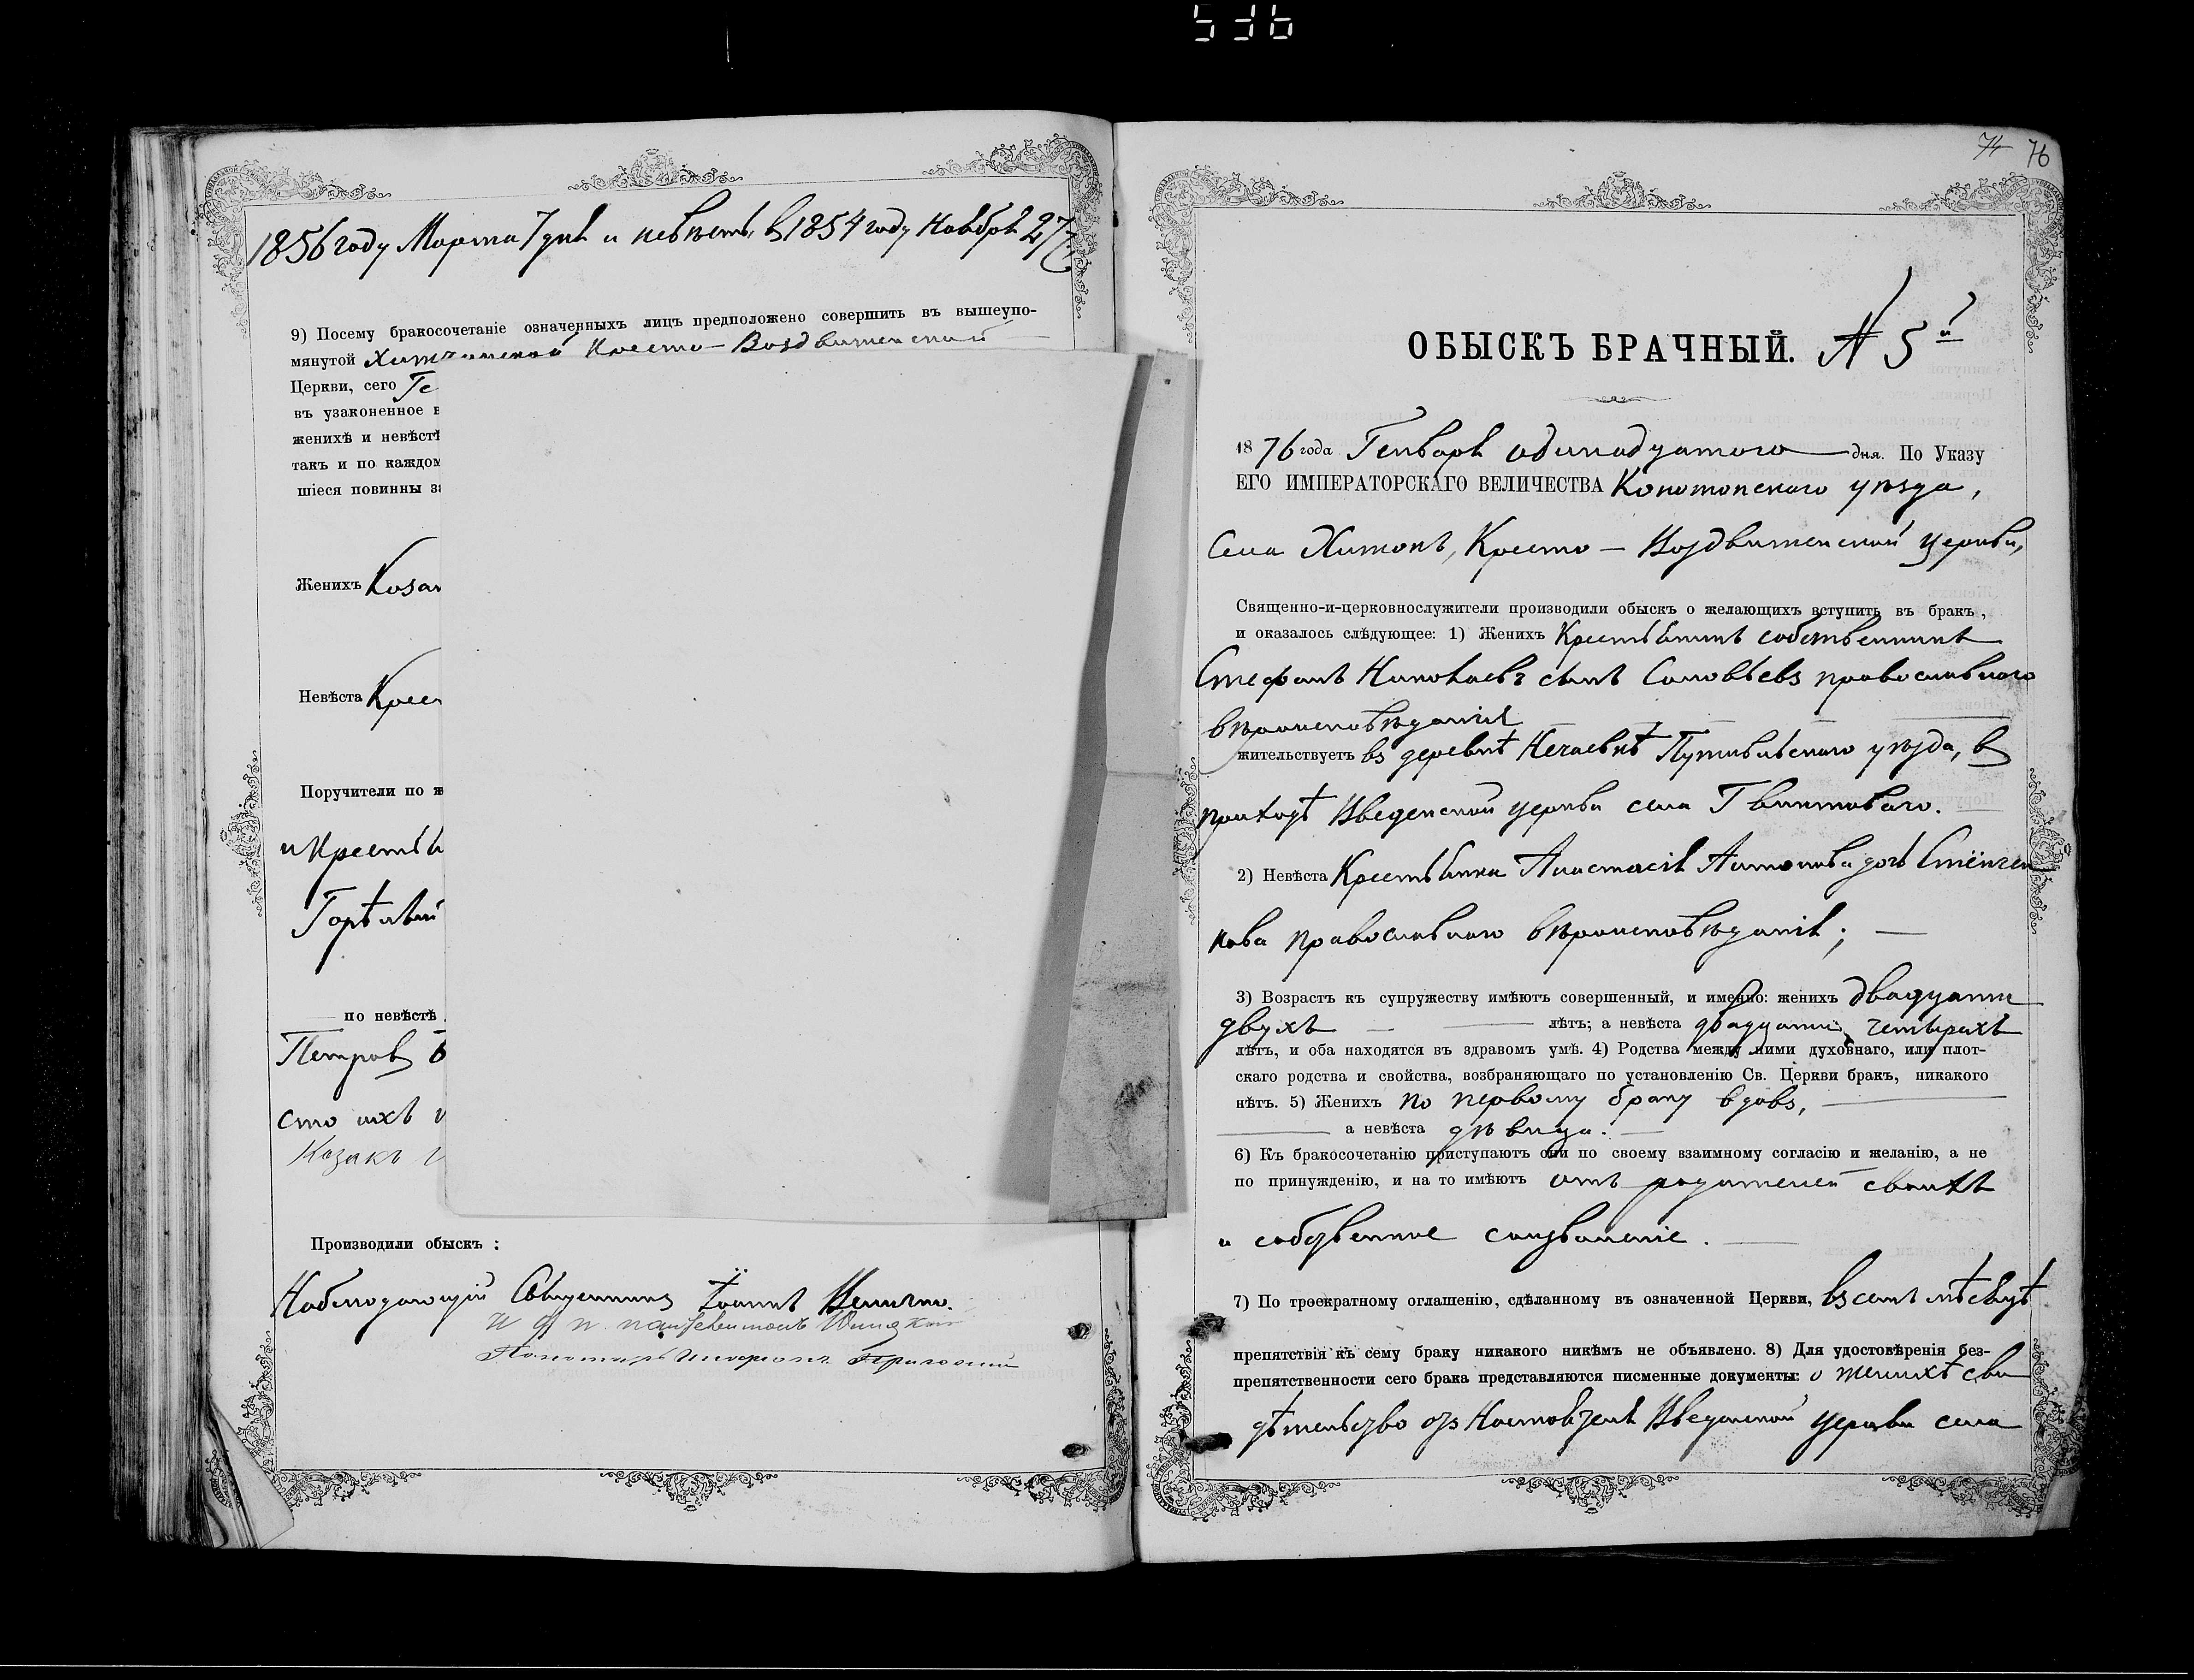 536
1856 году Марта 7 дня и невѣсты, въ 1854 году Ноября 27.
9) Посему бракосочетаніе означенныхъ лицъ предположено совершить въ вышеупо-
мянутой Кресто-Воздвиженской
Церкви, сего Ге
въ узаконенное в
женихѣ и невѣстѣ
такъ и по каждом
шіеся повинны за
Женихъ Козак
Невѣста Крест
Поручители по ж
и Крестья
Горѣлый
по невѣстѣ
Петров
сто ихъ
Козакъ
Производили обыскъ:
Наблюдающій Священникъ Іоаннъ
74 76
ОБЫСКЪ БРАЧНЫЙ. № 5й
1876 года Генваря одинадцатого дня. По Указу
ЕГО ИМПЕРАТОРСКАГО ВЕЛИЧЕСТВА Конотопского уѣзда,
Села Хижокъ, Кресто-Воздвиженской церкви,
Священно-и-церковнослужители производили обыскъ о желающихъ вступить въ бракъ,
и оказалось слѣдующее: 1) Женихъ Крестьянинъ собственникъ
Стефанъ Николаевъ сынъ Соловьевъ православного
вѣроисповѣданія
жительствуетъ въ деревнѣ Нечаевкѣ Путивльского уѣзда, въ
приходѣ Введенской церкви села Гвинтоваго.
2) Невѣста Крестьянка Анастасія Антонова дочь
кова православного вѣроисповѣданія;
3) Возрастъ къ супружеству имѣютъ совершенный, и именно: женихъ двадцати
двухъ лѣтъ; а невѣста двадцати четырехъ
лѣтъ, и оба находятся въ здравомъ умѣ. 4) Родства между ними духовнаго, или плот-
скаго родства и свойства, возбраняющаго по установленію Св. Церкви бракъ, никакого
нѣтъ. 5) Женихъ по первому браку вдовъ,
а невѣста дѣвица.
6) Къ бракосочетанію приступаютъ они по своему взаимному согласію и желанію, а не
по принужденію, и на то имѣютъ отъ родителей своихъ
и собственное соизволеніе.
7) По троекратному оглашенію, сдѣланному въ означенной Церкви, въ семъ мѣсяцѣ
препятствія къ сему браку никакого никѣмъ не объявлено. 8) Для удостовѣренія без-
препятственности сего брака представляются писменные документы: о женихѣ сви
дѣтельство отъ Настоятеля Введенской церкви села